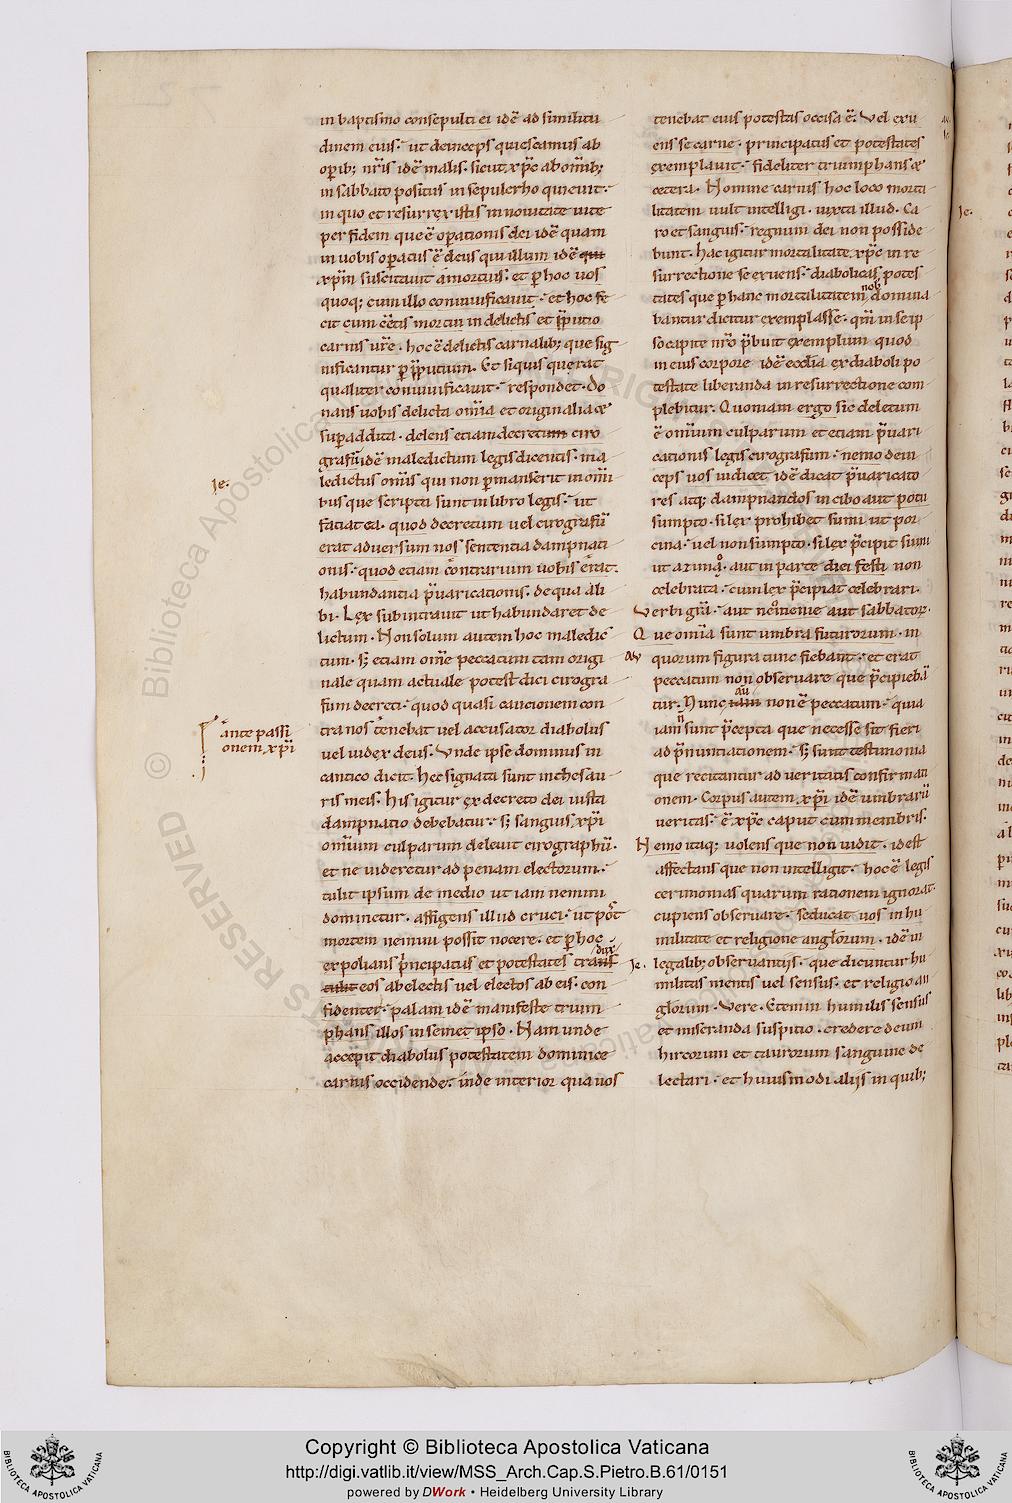 in baptismo consepulti ei idē ad similitu
dinem eius. ut deinceps quiescamus ab
operib; nr̄is idē malis. sicut xp̄c ab om̄ib;
in sabbato positus in sepulcrho quieuit.
in quo et resurrexistis in nouitate uite
per fidem que ē oꝑationis dei idē quam
in uobis oꝑatus ē deus qui illum idē qui
xp̄m suscitauit a mortuis. et ꝑ hoc uos
quoq; cum illo conuiuificauit. et hoc fe
cit cum eētis mortui in delictis et p̄putio
carnis ur̄e. hoc ē delictis carnalib; que sig
nificantur ꝑ p̄putium. Et siquis querat
qualiter conuiuificauit. respondet. Do
nans uobis delicta om̄ia et originalia &
suꝑaddita. delens etiam decretum ciro
grafū idē maledictum legis dicentis. ma
ledictus om̄is qui non ꝑmanserit in om̄i
bus que scripta sunt in libro legis. ut
faciat ea. quod decretum uel cirografū
erat aduersum nos sententia dampnati
onis. quod etiam contrarium uobis erat.
habundantia p̄uaricationis. de qua ali
bi. Lex subintrauit ut habundaret de
lictum. Non solum autem hoc maledic
tum. s; etiam om̄e peccatum tam origi
nale quam actuale potest dici cirogra
fum decreti. quod quasi cautionem con
tra nos tenebat uel accusator diabolus
uel iudex deus. Vnde ipse dominus in
cantico dicit. hec signata sunt in thesau
ris meis. his igitur ex decreto dei iusti
dampnatio debebatur. s; sanguis xp̄i
omīum culparum deleuit cirographū.
et ne uideretur ad penam electorum.
tulit ipsum de medio ut iam nemini
dominetur. affigens illud cruci. ut post
mortem nemini possit nocere. et ꝑ hoc
expolians p̄ncipatus et potestates transf
dux
tulit eos ab electis uel electos ab eis. con
fidenter. palam idē manifeste trium
phans illos in semet ipso. Nam unde
accepit diabolus potestatem dominice
carnis occidende. inde interior qua uos
Ie.
ante passi
onem xp̄i
tenebat eius potestas occisa ē. Vel exu
ens se carne. principatus et potestates
exemplauit. fideliter triumphans &
cetera. Nomine carnis hoc loco morta
litatem uult intelligi. iuxta illud. Ca
ro et sanguis. regnum dei non posside
bunt. hac igitur mortalitate xp̄c in re
surrectione se exuens. diabolicas potes
tates que ꝑ hanc mortalitatem nob̄ domina
bantur dicitur exemplasse. qm̄ in se ip
so capite nr̄o p̄buit exemplum quod
in eius corpore idē eccl̄ia ex diaboli po
testate liberanda in resurrectione com
plebitur. Quoniam ergo sic deletum
ē omīum culparum et etiam p̄uari
cationis legis cirografum. nemo dein
ceps uos iudicet idē dicat p̄uaricato
res atq; dampnandos in cibo aut potu
sumpto. si lex prohibet sumi ut por
cina. uel non sumpto. si lex p̄cipit sumi
ut azima. aut in parte diei festi non
celebrata. cum lex p̄cipiat celebrari.
Verbi gr̄a. aut neomenie aut sabbatoꝝ.
Que om̄ia sunt umbra futurorum. in
AV quorum figura tunc fiebant. et erat
peccatum non obseruare que p̄cipieba
au
tur. Nunc iam non ē peccatum. quia
iam n̄ sunt p̄cepta que necesse sit fieri
ad p̄nuntiationem. s; sunt testimonia
que recitantur ad ueritatis confirmati
onem. Corpus autem xp̄i idē umbrarū
ueritas. ē xp̄c caput cum membris.
Nemo itaq; uolens que non uidit. id est
affectans que non intelligit. hoc ē legis
cerimonias quarum rationem ignorat.
cupiens obseruare. seducat uos in hu
militate et religione angl̄orum. idē in
Ie. legalib; obseruantijs. que dicuntur hu
militas mentis uel sensus. et religio an
gl̄orum. Vere. Etenim humilis sensus
et miseranda suspitio. credere deum
hircorum et taurorum sanguine de
lectari. et huiusmodi alijs in quib;
Ie.
Copyright © Biblioteca Apostolica Vaticana
http://digi.vatlib.it/view/MSS_Arch.Cap.S.Pietro.B.61/0151
powered by DWork • Heidelberg University Library